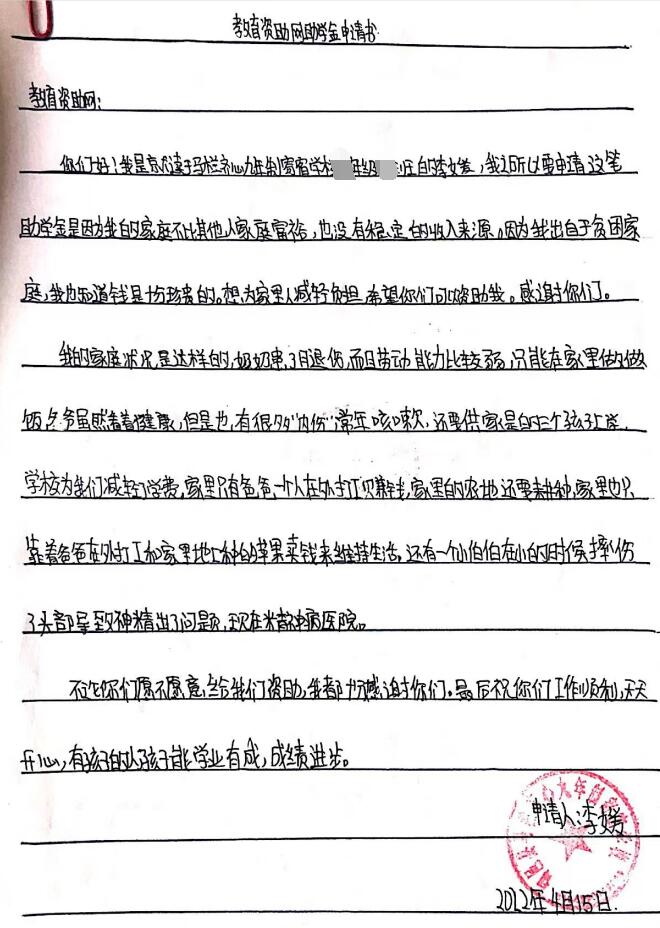 教育资助网助学金申请书
教育资助网:
你们好!我是就读于马栏齐心九年制寄宿学校 年级 班的李媛,我之所以要申请这笔
助学金是因为我的家庭不比其他人家庭富裕,也没有稳定的收入来源。因为我出自于贫困家
庭,我也知道钱是十分珍贵的。想为家里人减轻负担,希望你们可以资助我。感谢你们。
我的家庭状况是这样的,奶奶患了,而且劳动能力比较弱,只能在家里做做
饭,爷爷虽然看着健康,但是他有很多“内伤”常年咳嗽,还要供家里的三个孩子上学,
学校为我们减轻了学费,家里只有爸爸一个人在外打工赚钱,家里的农地还要耕种,家里也只
靠着爸爸在外打工和家里地上种的苹果卖钱来维持生活。还有一个小伯伯在小的时候摔伤
了头部导致神精出了问题,现在精神病医院。
不论你们愿不愿意给我们资助,我都十分感谢你们。最后祝你们工作顺利,天天
开心,有孩子的人孩子能学业有成,成绩进步。
申请人:李媛
2022年4月15日.